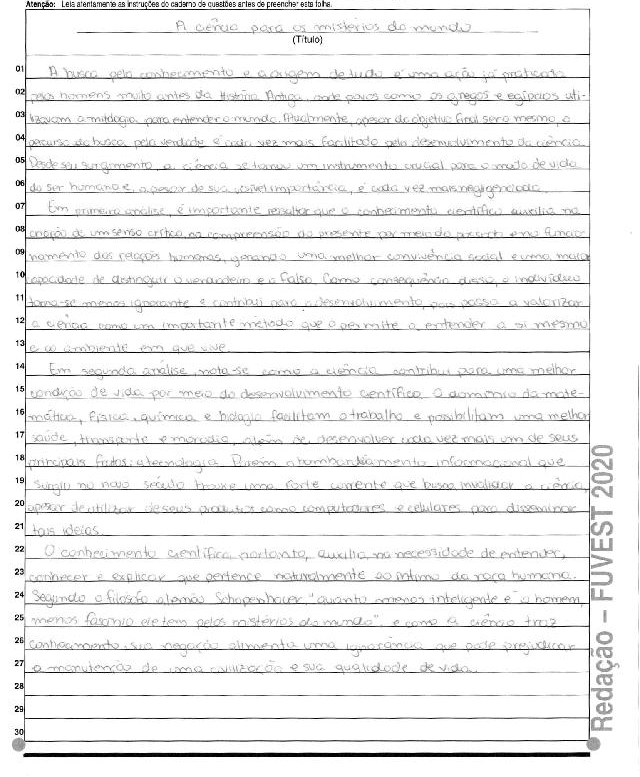 Atenção: Leia atentamente as instruções do caderno de questões antes de preencher esta folha.
A ciência para os mistérios do mundo
(Título)
01 A busca pelo conhecimento e a origem de tudo é uma ação já praticada
02 pelos homens muito antes da História Antiga, onde povos como os gregos e egípcios uti-
03 lizavam a mitologia para entender o mundo. Atualmente, apesar do objetivo final ser o mesmo, o
04 percurso da busca pela verdade é cada vez mais facilitado pelo desenvolvimento da ciência.
05 Desde seu surgimento, a ciência se tornou um instrumento crucial para o modo de vida
06 do ser humano e, apesar de sua visível importância, é cada vez mais negligenciada.
07 Em primeira análise, é importante ressaltar que o conhecimento científico auxilia na
08 criação de um senso crítico, na compreensão do presente por meio do passado e no funcio-
09 namento das relações humanas, gerando uma melhor convivência social e uma maior
10 capacidade de distinguir o verdadeiro e o falso. Como consequência disso, o indivíduo
11 torna-se menos ignorante e contribui para o desenvolvimento, pois passa a valorizar
12 a ciência como um importante método que o permite a entender a si mesmo
13 e ao ambiente em que vive.
14 Em segunda análise, nota-se como a ciência contribui para uma melhor
15 condição de vida por meio do desenvolvimento científico. O domínio da mate-
16 mática, física, química e biologia facilitam o trabalho e possibilitam uma melhor
17 saúde, transporte e moradia, além de desenvolver cada vez mais um de seus
18 principais frutos: a tecnologia. Porém, o bombardeamento informacional que
19 surgiu no novo século trouxe uma forte corrente que busca invalidar a ciência,
20 apesar de utilizar de seus produtos como computadores e celulares para disseminar
21 tais ideias.
22 O conhecimento científico, portanto, auxilia na necessidade de entender,
23 conhecer e explicar que pertence naturalmente ao íntimo da raça humana.
24 Segundo o filósofo alemão Schopenhauer "quanto menos inteligente é o homem,
25 menos fascínio ele tem pelos mistérios do mundo", e como a ciência traz
26 conhecimento, sua negação alimenta uma ignorância que pode prejudicar
27 a manutenção de uma civilização e sua qualidade de vida.
28
29
30
Redação – FUVEST 2020